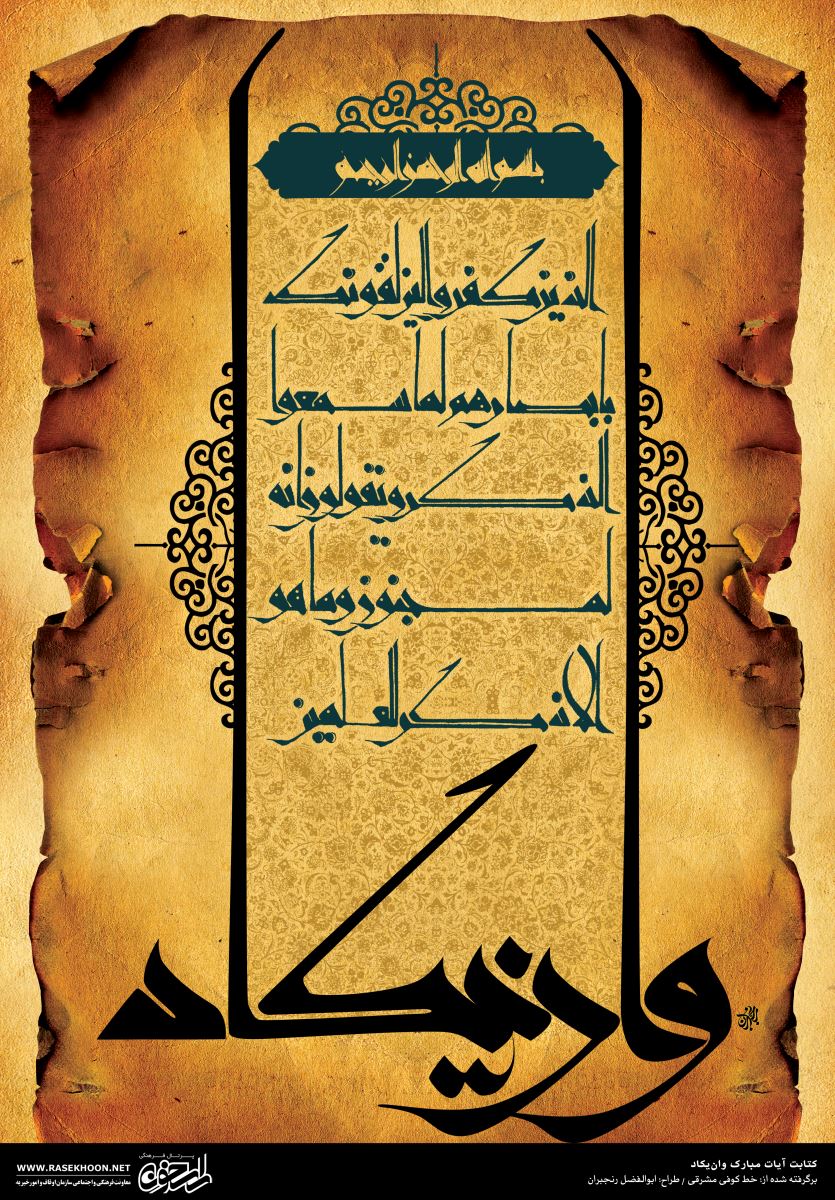 بسم الله الرحمن الرحیم
الذین کفروا لیزلقونک
بابصارهم لما سمعوا
الذکر و یقولون انه
لمجنون و ما هو
الا ذکر للعلمین
وان یکاد
کتابت آیات مبارک وان‌یکاد
برگرفته شده از: خط کوفی مشرقی / طراح: ابوالفضل رنجبران
پرتال فرهنگی
راسخون
WWW.RASEKHOON.NET
معاونت فرهنگی و اجتماعی سازمان اوقاف و امور خیریه